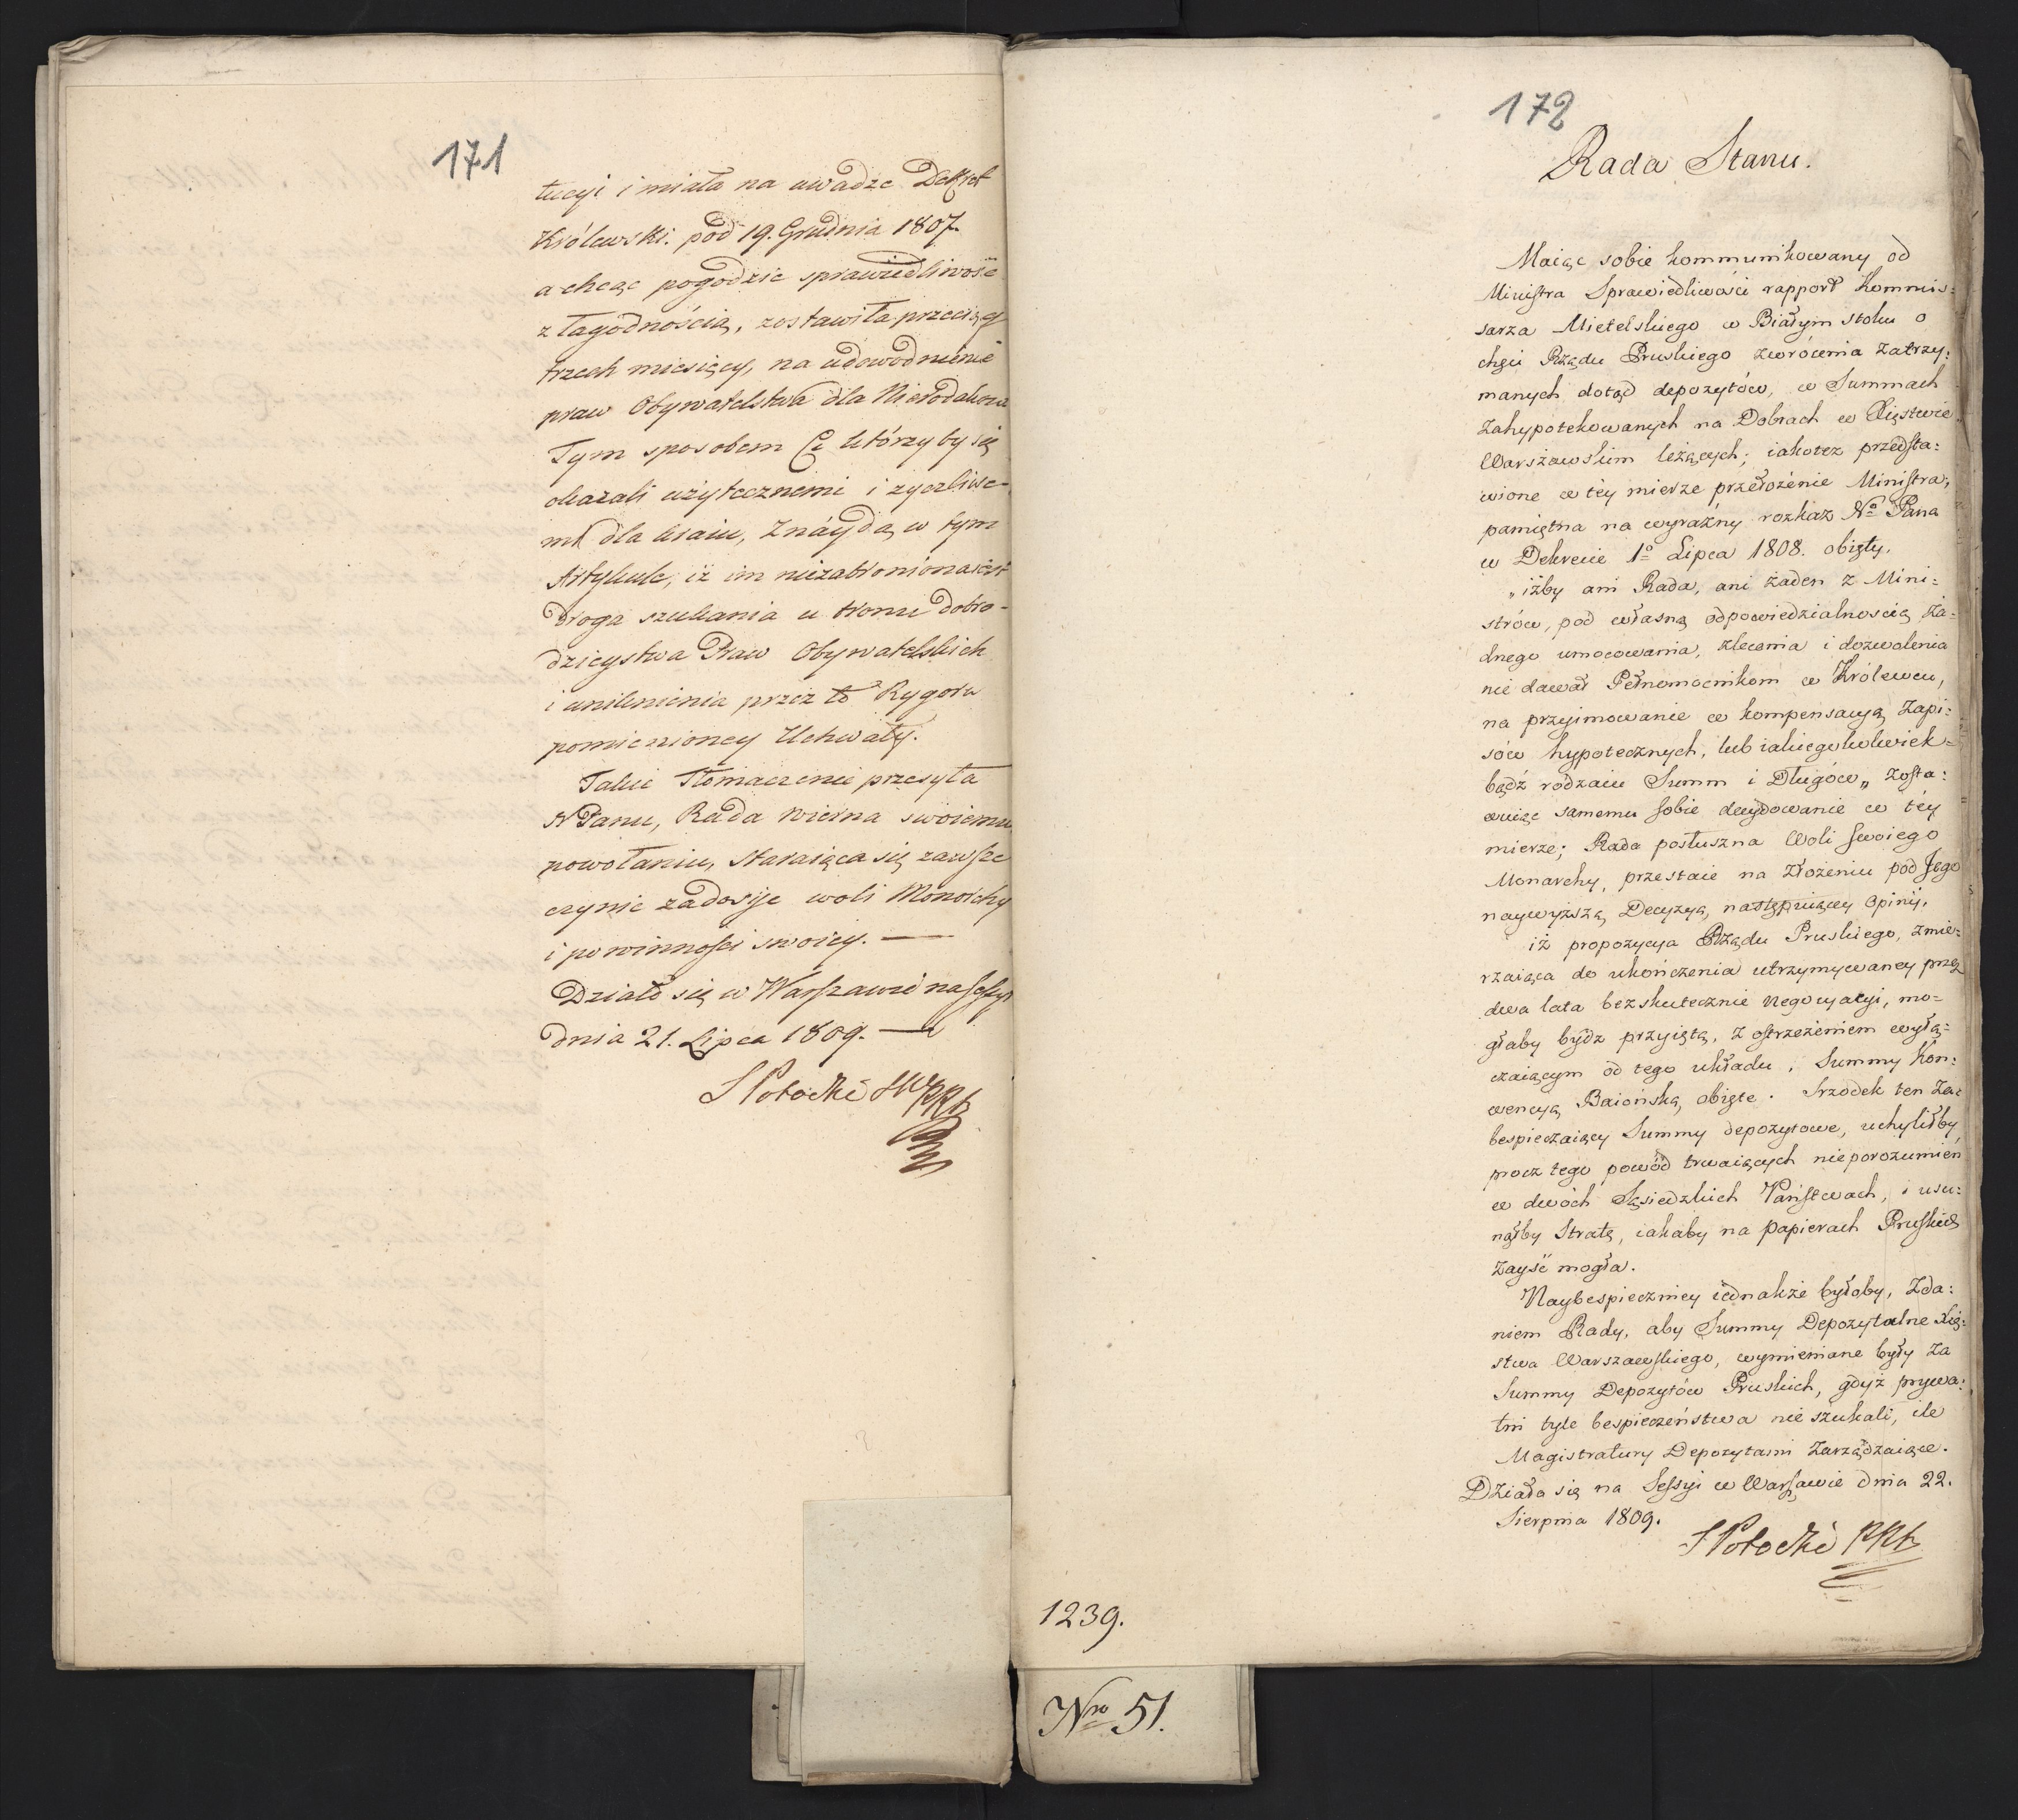 171
tucyi i miała na uwadze Dekret
Królewski pod 19. Grudnia 1807.
a chcąc pogodzić sprawiedliwość
z łagodnością, zostawiła przeciąg
trzech miesięcy, na udowodnienie
praw Obywatelstwa dla Nierodaków
Tym sposobem Ci którzy by się
okazali użytecznemi i życzliwe-
mi dla kraiu, Znáydą w tym
Artykule, iż im niezabroniona iest
droga szukania u tronu dobro-
dzieystwa Praw Obywatelskich
i uniknienia przez to Rygoru
pomienioney Uchwały.
Takie Tłómaczenie przesyła
N Panu, Rada wierna swoiemu
powołaniu, Staraiąca się zawsze
czynić zadosyć woli Monarchy
i powinności swoiey. —
Działo się w Warszawie na Sessyi
dnia 21. Lipca 1809. —
S Potocki
172
Rada Stanu.
Maiąc sobie kommunikowany od
Ministra Sprawiedliwości rapport Kommis=
sarza Mietelskiego w Białym stoku o
chęci Rządu Pruskiego zwrócenia zatrzy:
manych dotąd depozytów, w Summach
zahypotekowanych na Dobrach w Xięstwie
Warszawskim leżących; iakotez przedsta:
wione w téy mierze przełożenie Ministra,
pamiętna na wyraźny rozkaz No Pana
w Dekrecie 1o Lipca 1808. obięty.
„iżby ani Rada, ani żaden z Mini=
strów, pod własną odpowiedzialnoscią ża=
dnego umocowania, zlecenia i dozwolenia
nie dawał Pełnomocnikom w Królewcu,
na przyimowanie w kompensacyą Zapi:
sów hypotecznych, lub iakiegokolwiek=
bądź rodzaiu Summ i Długów„ zosta:
wuiąc samemu sobie decydowanie w téy
mierze; Rada posłuszna Woli swoiego
Monarchy, przestaie na złożeniu pod Jego
naywyższą Decyzyą, następuiącey Opinij.
iż propozycya Rządu Pruskiego, zmie=
rzaiąca do ukończenia utrzymywaney przez
dwa lata bezskutecznie Negocyacyi, mo=
głaby bydź przyiętą, z ostrzeżeniem wyłą=
czaiącym od tego układu, Summy Kon:
wencyą Baiońską obięte. Srzodek ten za:
bespieczaiący Summy depozytowe, uchyliłby
mocz tego powód trwaiących nieporozumień
w dwóch Sąsiedzkich Państwach, i usu:
nąłby Stratę, iakaby na papierach Pruskich
zayść mogła.
Naybespieczniey iednakże byłoby, Zda:
niem Rady, aby Summy Depozytalne Xię:
stwa Warszawskiego, wymieniane były za
Summy Depozytów Pruskich, gdyż prywa:
tni tyle bespieczeństwa nie szukali, ile
Magistratury Depozytami Zarządzaiące.
Działo się na Sessyi w Warszawie dnia 22.
Sierpnia 1809.
S Potocki
1239.
Nro 51.